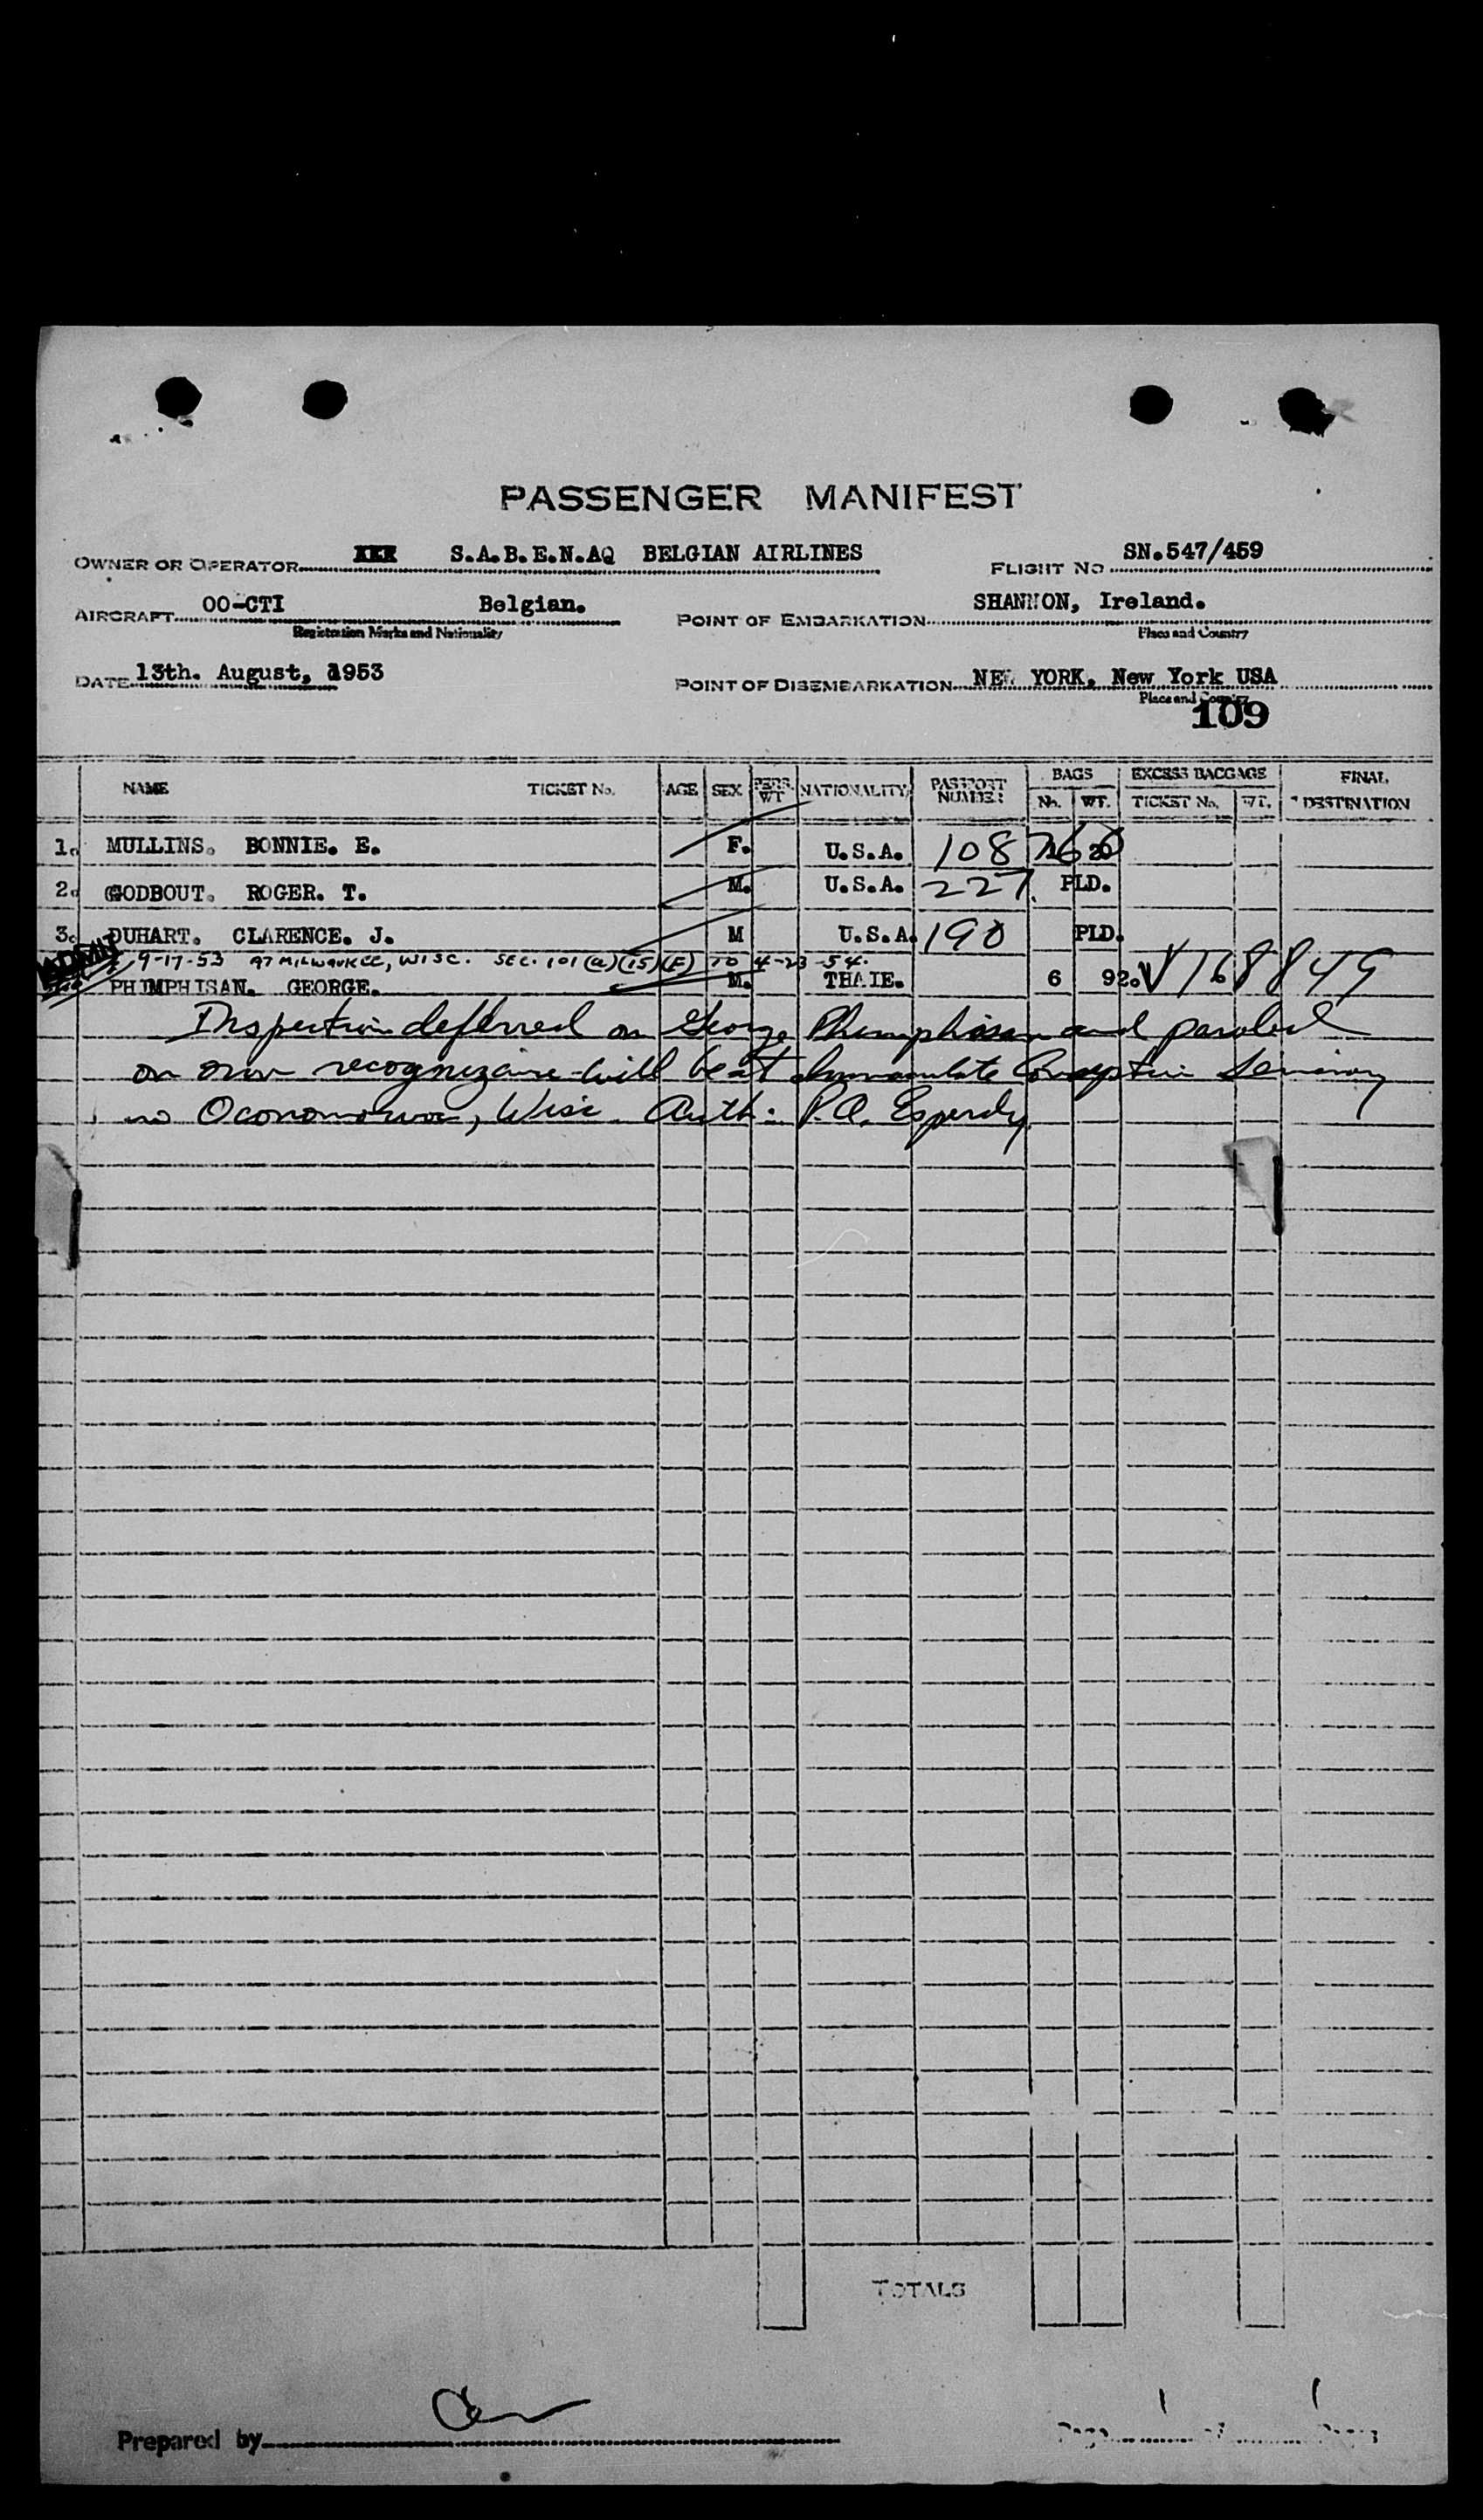 PASSENGER MANIFEST
OWNER OR OPERATOR S.A.B.E.N.AQ BELGIAN AIRLINES FLIGHT NO SN.547/459
AIRCRAFT OO-CTI Belgian. POINT OF EMBARKATION SHANNON, Ireland.
Registration Marks and Nationality Place and Country
DATE 13th. August, 1953 POINT OF DISEMBARKATION NEW YORK, New York USA
Place and Country
109
NAME TICKET No. AGE SEX PERS. WT NATIONALITY PASSPORT NUMBER BAGS EXCESS BAGGAGE FINAL DESTINATION
No. WT. TICKET No. WT.
1. MULLINS. BONNIE. E. F. U.S.A. 108766
2. GODBOUT. ROGER. T. M. U.S.A. 227 PLD.
3. DUHART. CLARENCE. J. M U.S.A. 190 PLD.
ADMIT 9-17-53 AT MILWAUKEE, WISC. SEC. 101(a)(15)(F) TO 4-23-54.
PHIMPHISAN. GEORGE. M. THAIE. 6 92. V1688449
Inspection deferred on George Phimphisan and paroled
on own recognizance - will be at Immaculate Conception Seminary
in Oconomowoc, Wisc. Auth: P.A. Esperdy
TOTALS
Prepared by
Page 1 of 1 Pages